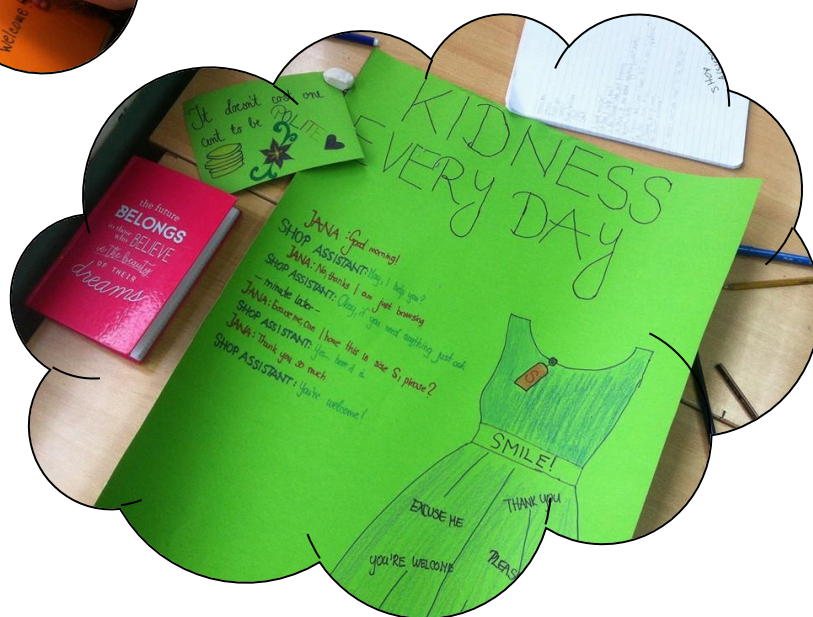 Welcome
It doesn't cost one
cent to be POLITE
the future
BELONGS
to those
who BELIEVE
in the beauty
OF THEIR
dreams
KIDNESS
EVERY DAY
JANA: Good morning!
SHOP ASSISTANT: Hey, I help you?
JANA: No, thanks I am just browsing
SHOP ASSISTANT: Okay, if you need anything just ask
- minute later -
JANA: Excuse me, can I have this in size S, please?
SHOP ASSISTANT: Yes here it is
JANA: Thank you so much
SHOP ASSISTANT: You're welcome!
S
SMILE!
EXCUSE ME
THANK YOU
YOU'RE WELCOME
PLEAS